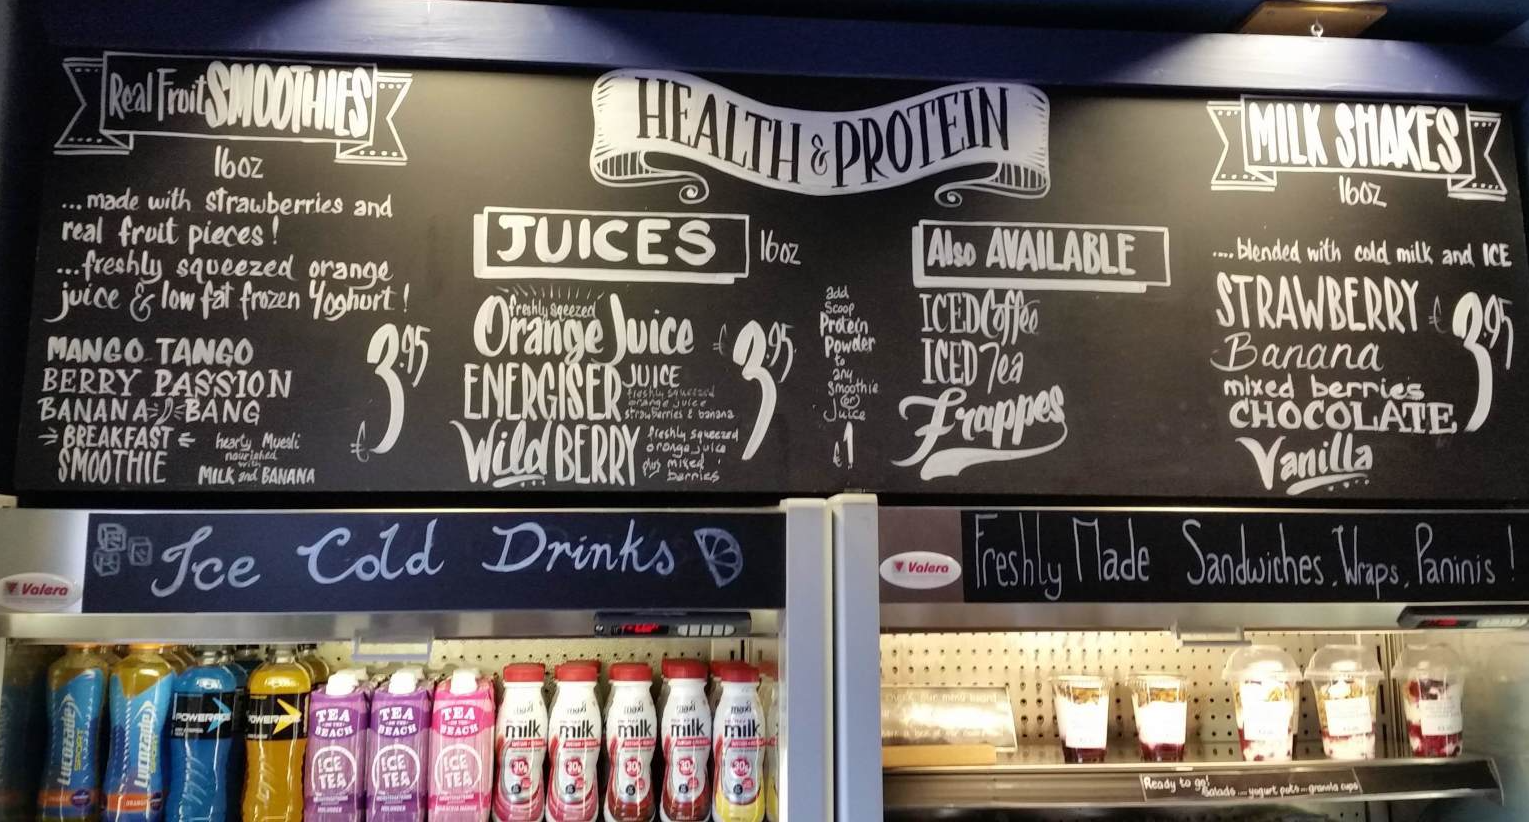 Real Fruit SMOOTHIES
16oz
...made with strawberries and
real fruit pieces!
...freshly squeezed orange
juice & low fat frozen Yoghurt!
MANGO TANGO
BERRY PASSION
BANANA BANG
BREAKFAST
SMOOTHIE
hearty Muesli
nourished
with
MILK and BANANA
£3.95
HEALTH & PROTEIN
JUICES 16oz
freshly sqeezed
Orange Juice
ENERGISER JUICE
freshly squeezed
orange juice
strawberries & banana
Wild BERRY
freshly squeezed
orange juice
plus mixed
berries
£3.95
add
Scoop
Protein
Powder
to
any
Smoothie
(or)
Juice
£1
Also AVAILABLE
ICED Coffee
ICED Tea
Frappes
MILK SHAKES
16oz
....blended with cold milk and ICE
STRAWBERRY
Banana
mixed berries
CHOCOLATE
Vanilla
£3.95
Valera
Ice Cold Drinks
Valera
Freshly Made Sandwiches, Wraps, Paninis!
LUCOZADE SPORT
LUCOZADE SPORT
POWERADE
POWERADE
TEA
BEACH
ICE
TEA
TEA
BEACH
ICE
TEA
TEA
BEACH
ICE
TEA
maxi
milk
30g
maxi
milk
30g
maxi
milk
30g
maxi
milk
30g
maxi
milk
30g
Ready to go!
Salads ... yogurt pots ... granola cups